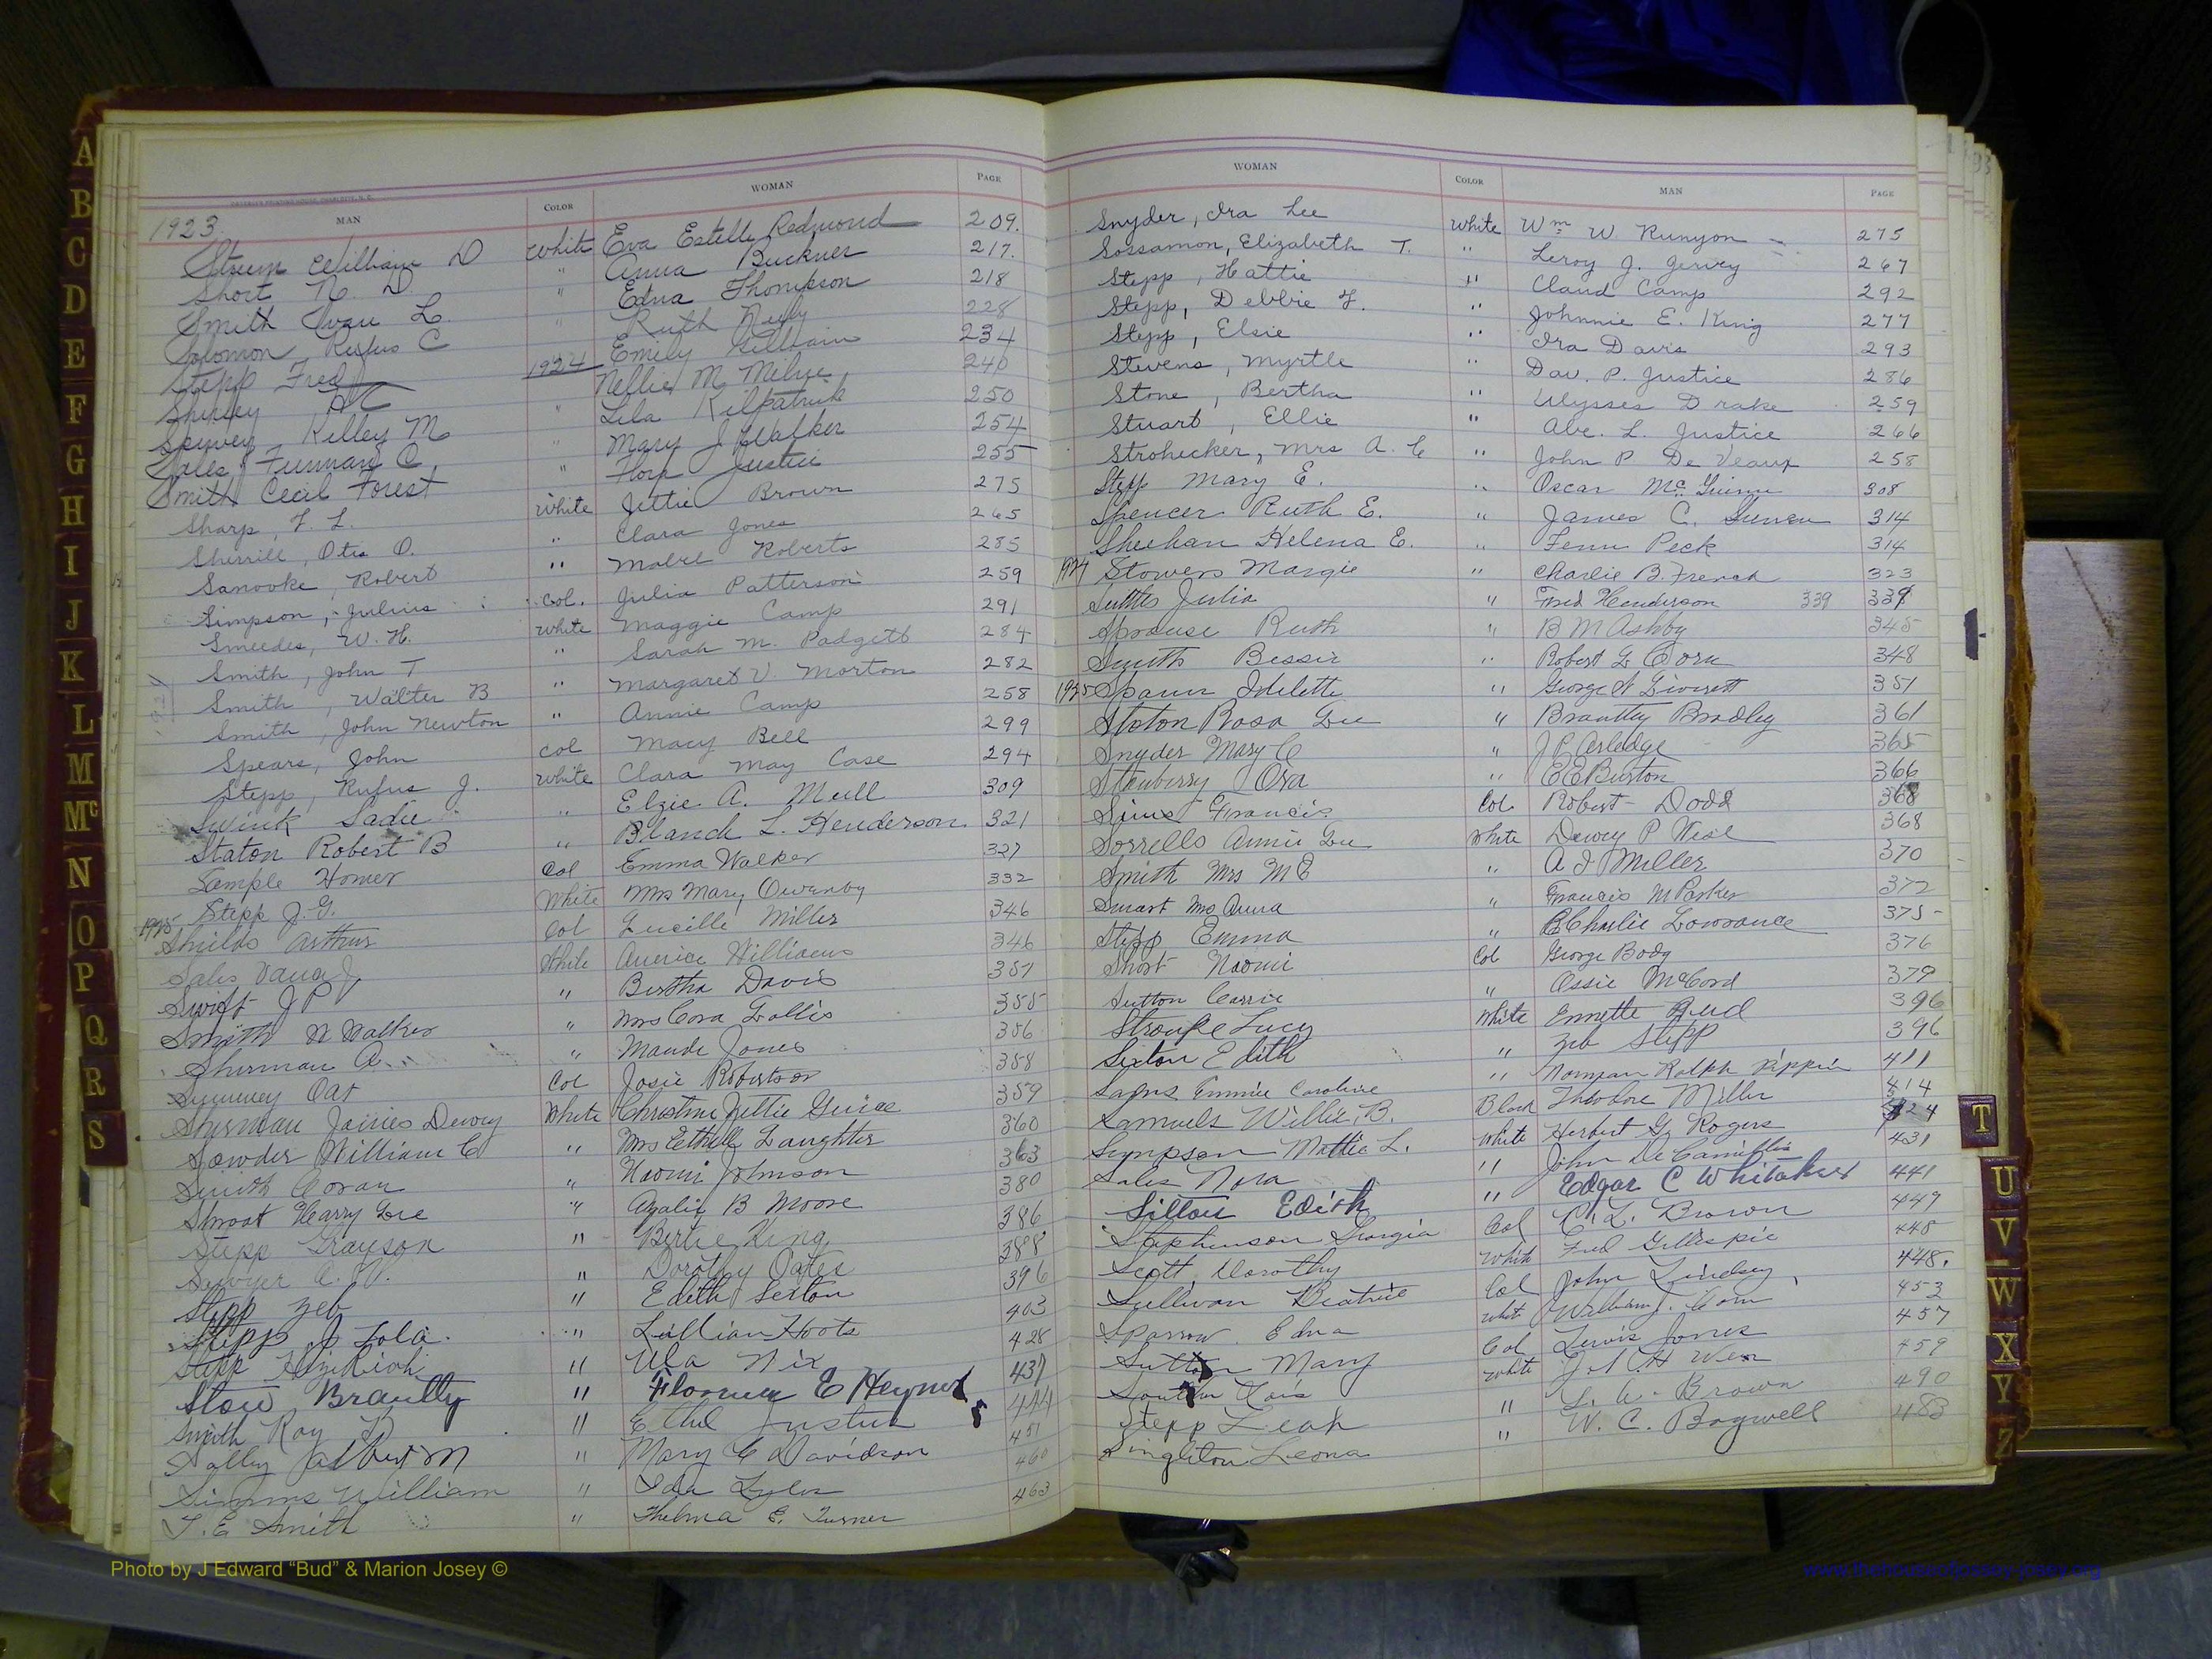 MAN COLOR WOMAN PAGE
1923
William D White Eva Estelle Redmond 209.
Short N. D " Anna Buckner 217.
Smith L. " Edna Thompson 218
Solomon Rufus C " Ruth 228
Stepp Fred Emily Killian 234
Shipley 1924 Nellie M. Milne 240
Kelley M " Lila Kilpatrick 250
Sales, Furman O. " Mary J Walker 254
Smith Cecil Forest " Flora Justice 255
Sharp, F. L. White Jettie Brown 275
Sherrill, Otis O. " Clara Jones 265
Sanooke, Robert " Mabel Roberts 285
Simpson, Julius Col. Julia Patterson 259
Smeedes, W. H. White Maggie Camp 291
Smith, John T " Sarah M. Padgett 284
Smith, Walter B " Margaret V. Morton 282
Smith, John Newton " Annie Camp 258
Spears, John Col Macy Bell 299
Stepp, Rufus J. White Clara May Case 294
Swink Sadie " Elzie A. Mull 309
Staton Robert B " Blanch L. Henderson 321
Sample Homer Col Emma Walker 327
Stepp J. G. White Mrs Mary Owenby 332
1925 Shields Arthur Col Lucille Miller 346
Sales J White Williams 346
Swift J P " Bertha Davis 351
Smith N Walker " Mrs Cora Lollis 355
Sherman A. " Maude Jones 356
Col Josie Robertson 358
Sherman James Dewey White Christine Jettie Guice 359
Sowder William C " Mrs Ethell Laughter 360
Smith " Naomi Johnson 363
Smoot Harry Lee " B Moore 380
Stepp Grayson " Bertie King 386
Sawyer " Dorothy Oates 388
Stepp Zeb " Edith Sexton 396
Stepp J Lola " Lillian Hoots 403
Stepp Hezekiah " Ula Nix 428
Stow Brantly " Florence E 437
Smith Roy D " Ethel Justus 444
Albert M " Mary E Davidson 451
Simms William " Ida 460
T. E Smith " Thelma E. Turner 463
WOMAN COLOR MAN PAGE
Snyder, Ira Lee White Wm W. Runyon 275
Sossamon, Elizabeth T. " Leroy J. 267
Stepp, Hattie " Claud Camp 292
Stepp, Debbie F. " Johnnie E. King 277
Stepp, Elsie " Ira Davis 293
Stevens, Myrtle " Dav. P. Justice 286
Stone, Bertha " Ulysses Drake 259
Stuart, Ellie " Abe. L. Justice 266
Strohecker, Mrs A. C " John P De Veaux 258
Stepp Mary E. " Oscar 308
Spencer Ruth E. " James C. 314
Sheehan Helena E. " Fenn Peck 314
1924 Stowers Margie " Charlie B. French 323
Suttles Julia " Fred Henderson 339 339
Sprouse Ruth " B M Ashby 345
Smith Bessie " Robert L Corn 348
1925 Spann Idelette " George N 351
Staton Rosa Lee " Brantly Bradley 361
Snyder Mary C " J P Arledge 365
Ora " E E Burton 366
Sims Francis Col Robert Dodd 368
Sorrells Annie Lee White Dewey P 368
Smith Mrs M E " A J Miller 370
Smart Mrs Anna " Francis M Parker 372
Stepp Emma " Charlie Lowrance 375
Short Naomi Col George Body 376
Sutton Carrie " Ossie McCord 379
Stroupe Lucy White Ennette 396
Sexton Edith " Zeb Stepp 396
Emmie Caroline " Norman Ralph Pippin 411
Samuels Willie, B. Black Theodore Miller 414
Sympson Mattie L. White Herbert G. Rogers 424
Sales Nora " John De Camillis 431
Sitton Edith " Edgar C Whitaker 441
Stephenson Georgia Col C. L. Brown 449
Scott, Dorothy White Fred Gillespie 445
Sullivan Beatrice Col John Lindsey 448.
Sparrow Edna White William J. Corn 453
Sutton Mary Col Lewis Jones 457
Lois White 459
Stepp Leah " L. A. Brown 490
Singleton Leona " W. C. Bagwell 483
A
B
C
D
E
F
G
H
I
J
K
L
M
Mc
N
O
P
Q
R
S
T
U
V
W
X
Y
Z
Photo by J Edward “Bud” & Marion Josey ©